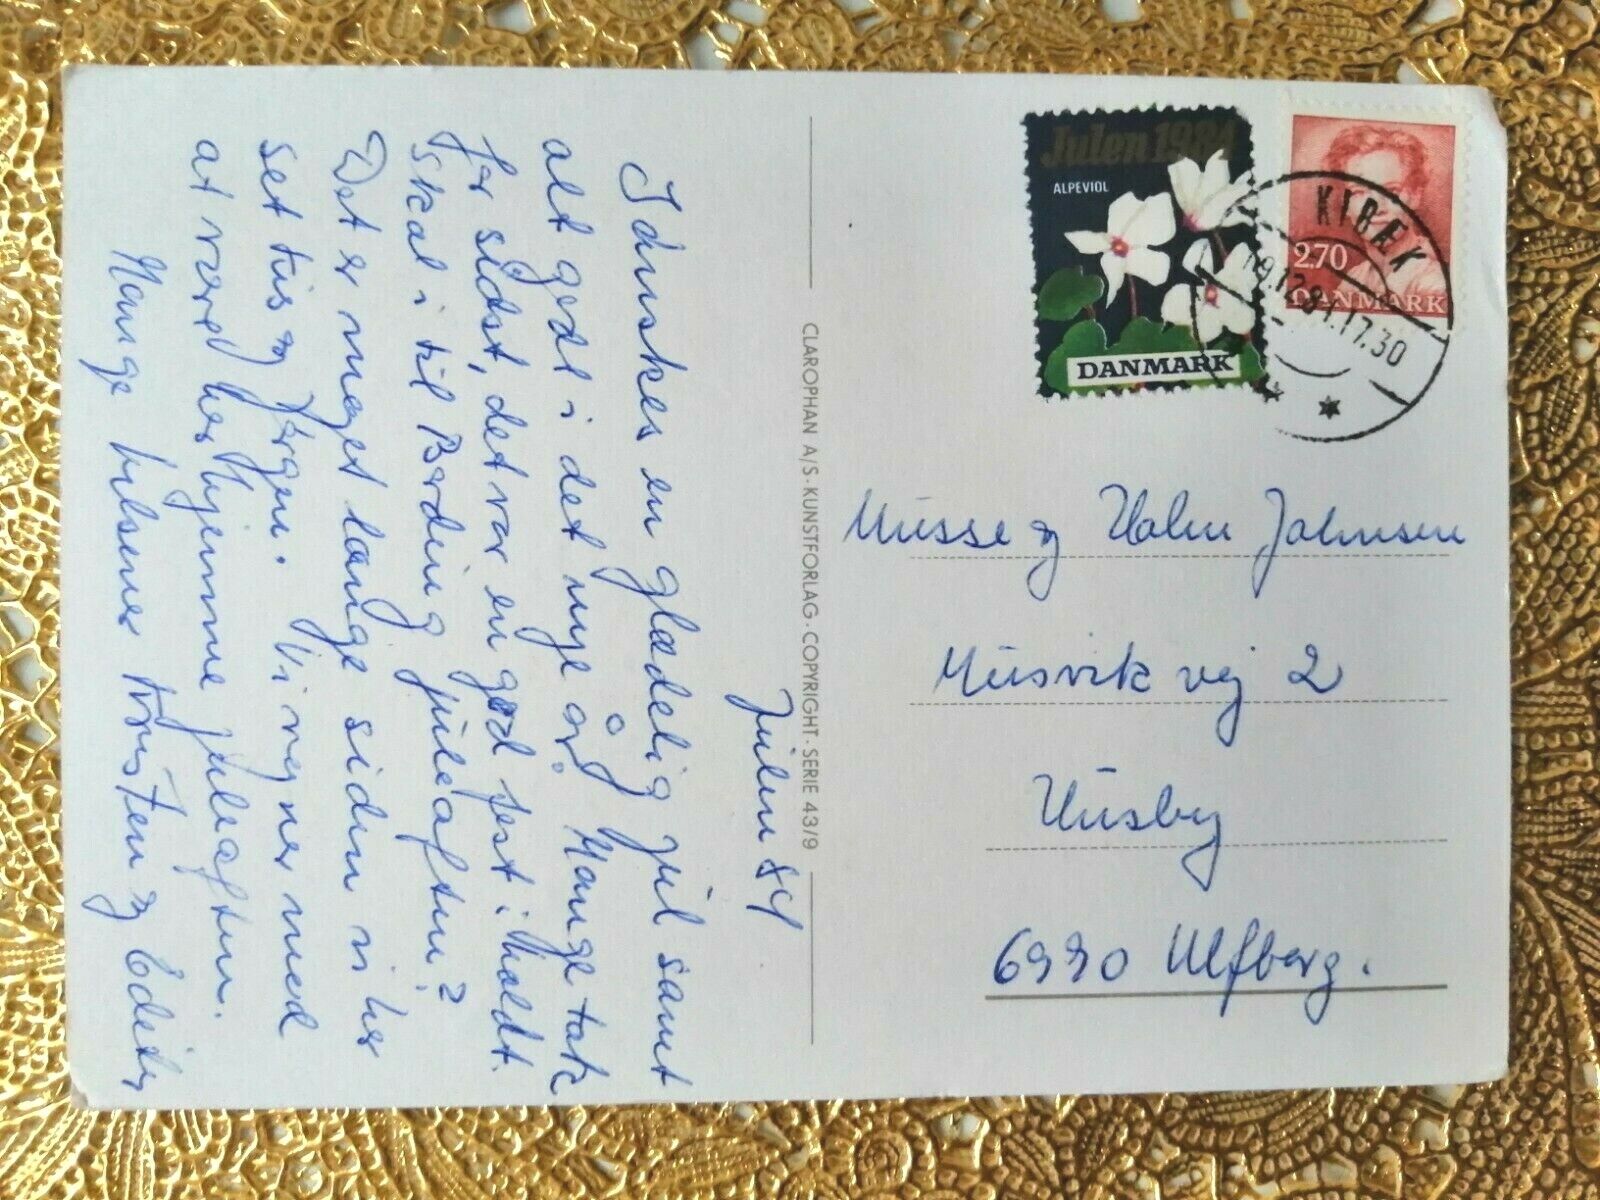 Julen 84
Idnskes en glædelig jul samt
alt godt i det nye år. Mange tak
for sidst, det var en god fest i holdt.
skal i til Bording juleaften?
Det er meget længe siden vi har
set Jiis og Jørgen. Vi regner med
at være her hjemme juleaften.
Mange hilsener Kresten og Edith
CLAROPHAN A/S · KUNSTFORLAG · COPYRIGHT · SERIE 43/9
Julen 1984
ALPEVIOL
DANMARK
2.70
DANMARK
KIBÆK
19.12.84.17.30
Musse og Holm Johnsen
Husvik vej 2
Husby
6990 Ulfborg.